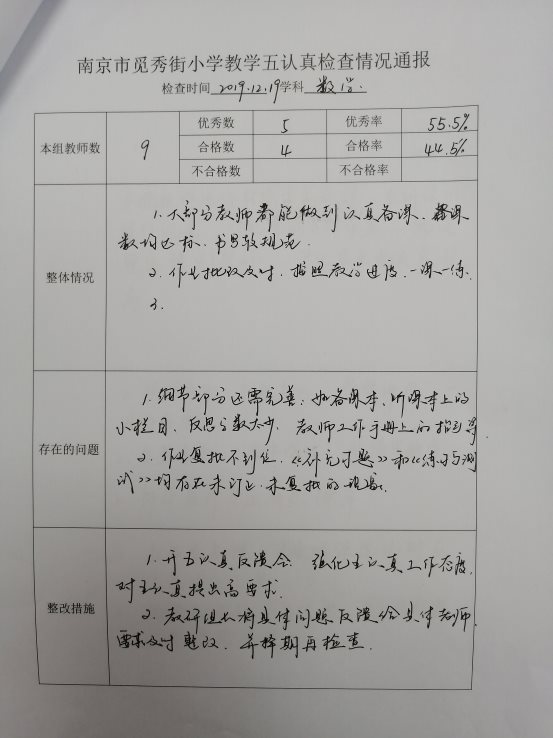 南京市觅秀街小学教学五认真检查情况通报
检查时间 2019.12.19 学科 数学
本组教师数 9 优秀数 5 优秀率 55.5%
合格数 4 合格率 44.5%
不合格数 不合格率
整体情况
1. 大部分教师都能做到认真备课、备课
数均达标、书写较规范.
2. 作业批改及时. 按照教学进度. 一课一练.
3.
存在的问题
1. 细节部分还需完善. 如备课本、听课本上的
小栏目、反思字数太少. 教师工作手册上的指导等
2. 作业复批不到位. 《补充习题》和《练习与测
试》均存在未订正. 未复批的现象.
整改措施
1. 开五认真反馈会. 强化五认真工作态度.
对五认真提出高要求.
2. 教研组长将具体问题反馈给具体老师.
要求及时整改. 并择期再检查.